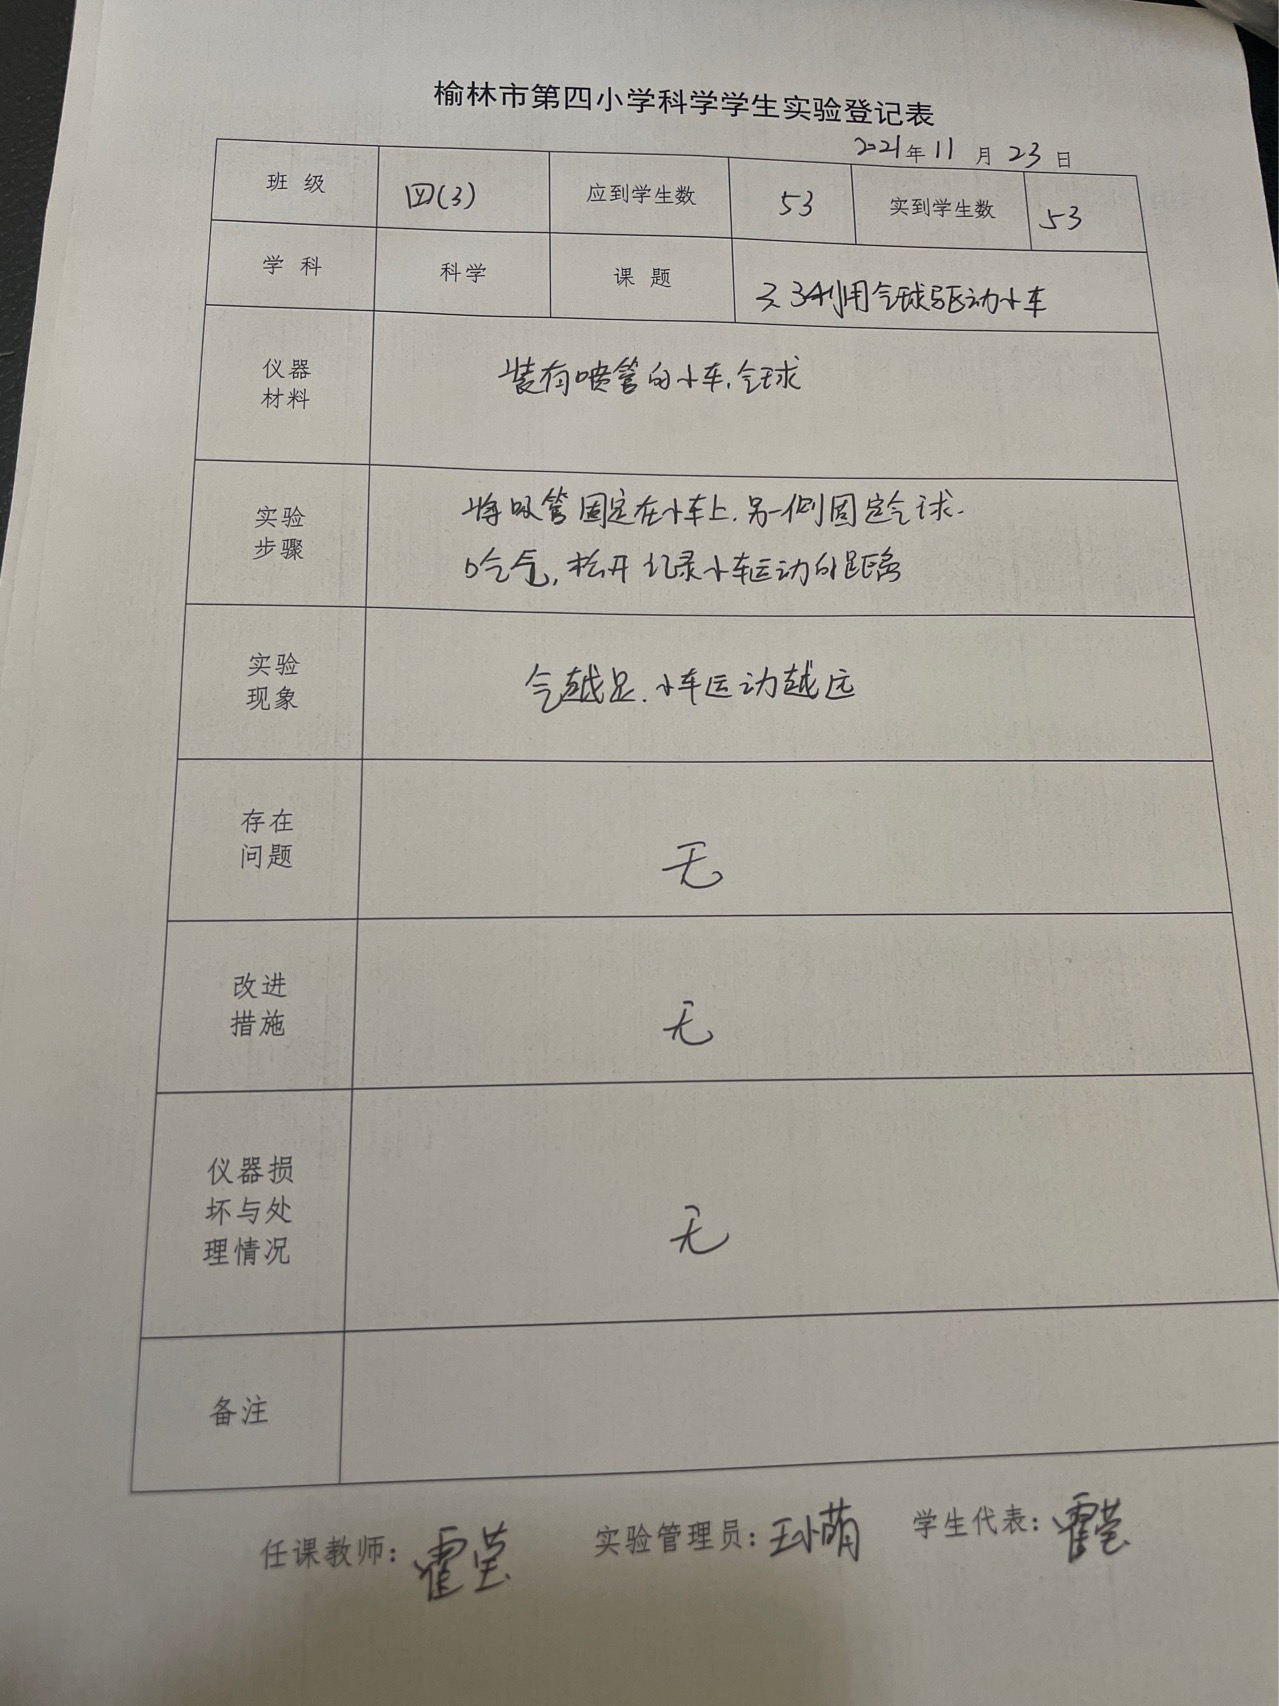 榆林市第四小学科学学生实验登记表
2021年11月23日
班级 四(3) 应到学生数 53 实到学生数 53
学科 科学 课题 3.3利用气球驱动小车
仪器
材料
装有喷管的小车,气球
实验
步骤
将吸管固定在小车上,另一侧固定气球.
吹气,松开记录小车运动的距离
实验
现象
气越足.小车运动越远
存在
问题
无
改进
措施
无
仪器损
坏与处
理情况
无
备注
任课教师: 霍莹 实验管理员: 王小萌 学生代表: 霍莹